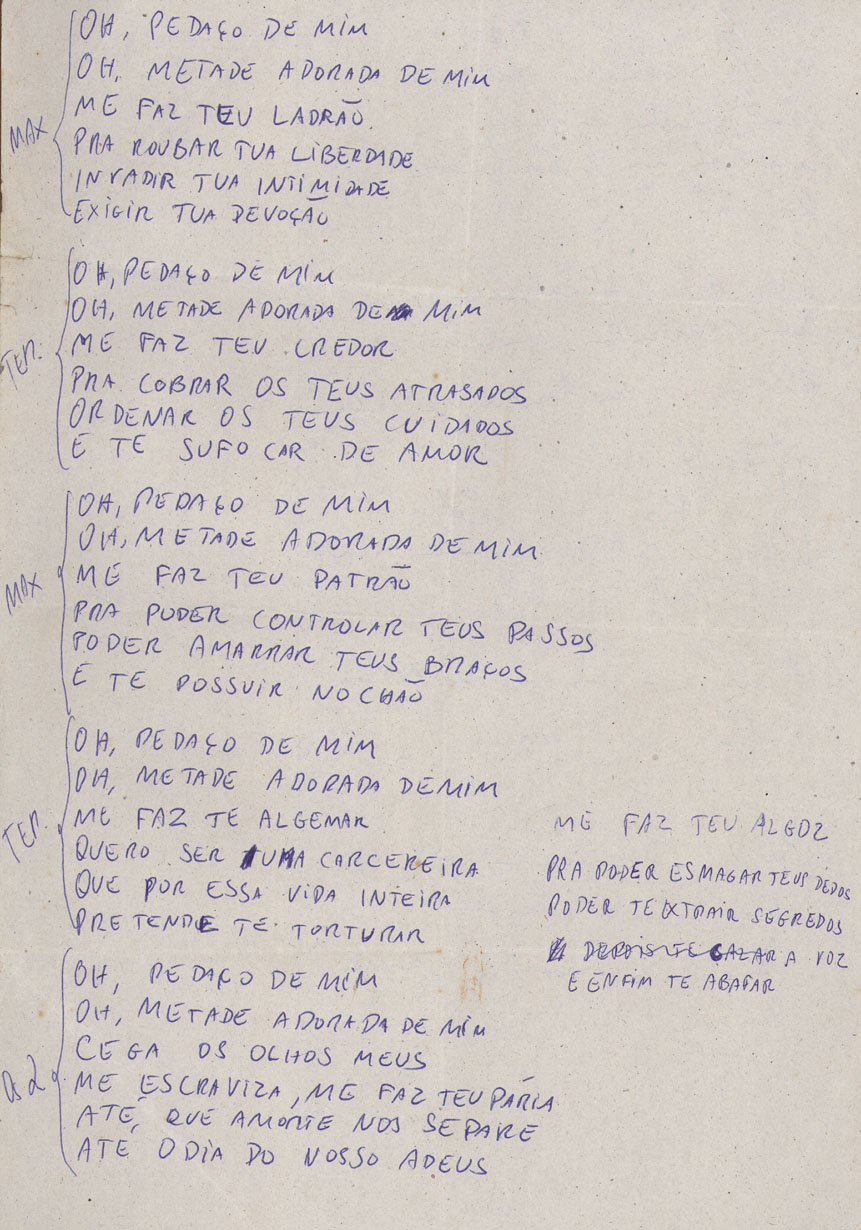 MAX
OH, PEDAÇO DE MIM
OH, METADE ADORADA DE MIM
ME FAZ TEU LADRÃO
PRA ROUBAR TUA LIBERDADE
INVADIR TUA INTIMIDADE
EXIGIR TUA DEVOÇÃO
TER.
OH, PEDAÇO DE MIM
OH, METADE ADORADA DE MIM
ME FAZ TEU CREDOR
PRA COBRAR OS TEUS ATRASADOS
ORDENAR OS TEUS CUIDADOS
E TE SUFOCAR DE AMOR
MAX
OH, PEDAÇO DE MIM
OH, METADE ADORADA DE MIM
ME FAZ TEU PATRÃO
PRA PODER CONTROLAR TEUS PASSOS
PODER AMARRAR TEUS BRAÇOS
E TE POSSUIR NO CHÃO
TER.
OH, PEDAÇO DE MIM
OH, METADE ADORADA DE MIM
ME FAZ TE ALGEMAR
QUERO SER TUA CARCEREIRA
QUE POR ESSA VIDA INTEIRA
PRETENDE TE TORTURAR
ME FAZ TEU ALGOZ
PRA PODER ESMAGAR TEUS DEDOS
PODER TE EXTRAIR SEGREDOS
DEPOIS TE CALAR A VOZ
E ENFIM TE ABAFAR
OS 2
OH, PEDAÇO DE MIM
OH, METADE ADORADA DE MIM
CEGA OS OLHOS MEUS
ME ESCRAVIZA, ME FAZ TEU PÁRIA
ATÉ, QUE A MORTE NOS SEPARE
ATÉ O DIA DO NOSSO ADEUS